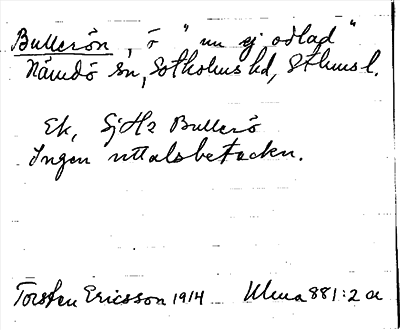 Bullerön, ö "nu ej odlad"
Nämdö sn, Sotholms hd, Sthms l.
Ek, SjH2 Bullerö
Ingen uttalsbeteckn.
Torsten Ericsson 1914 Ulma 881:2 a